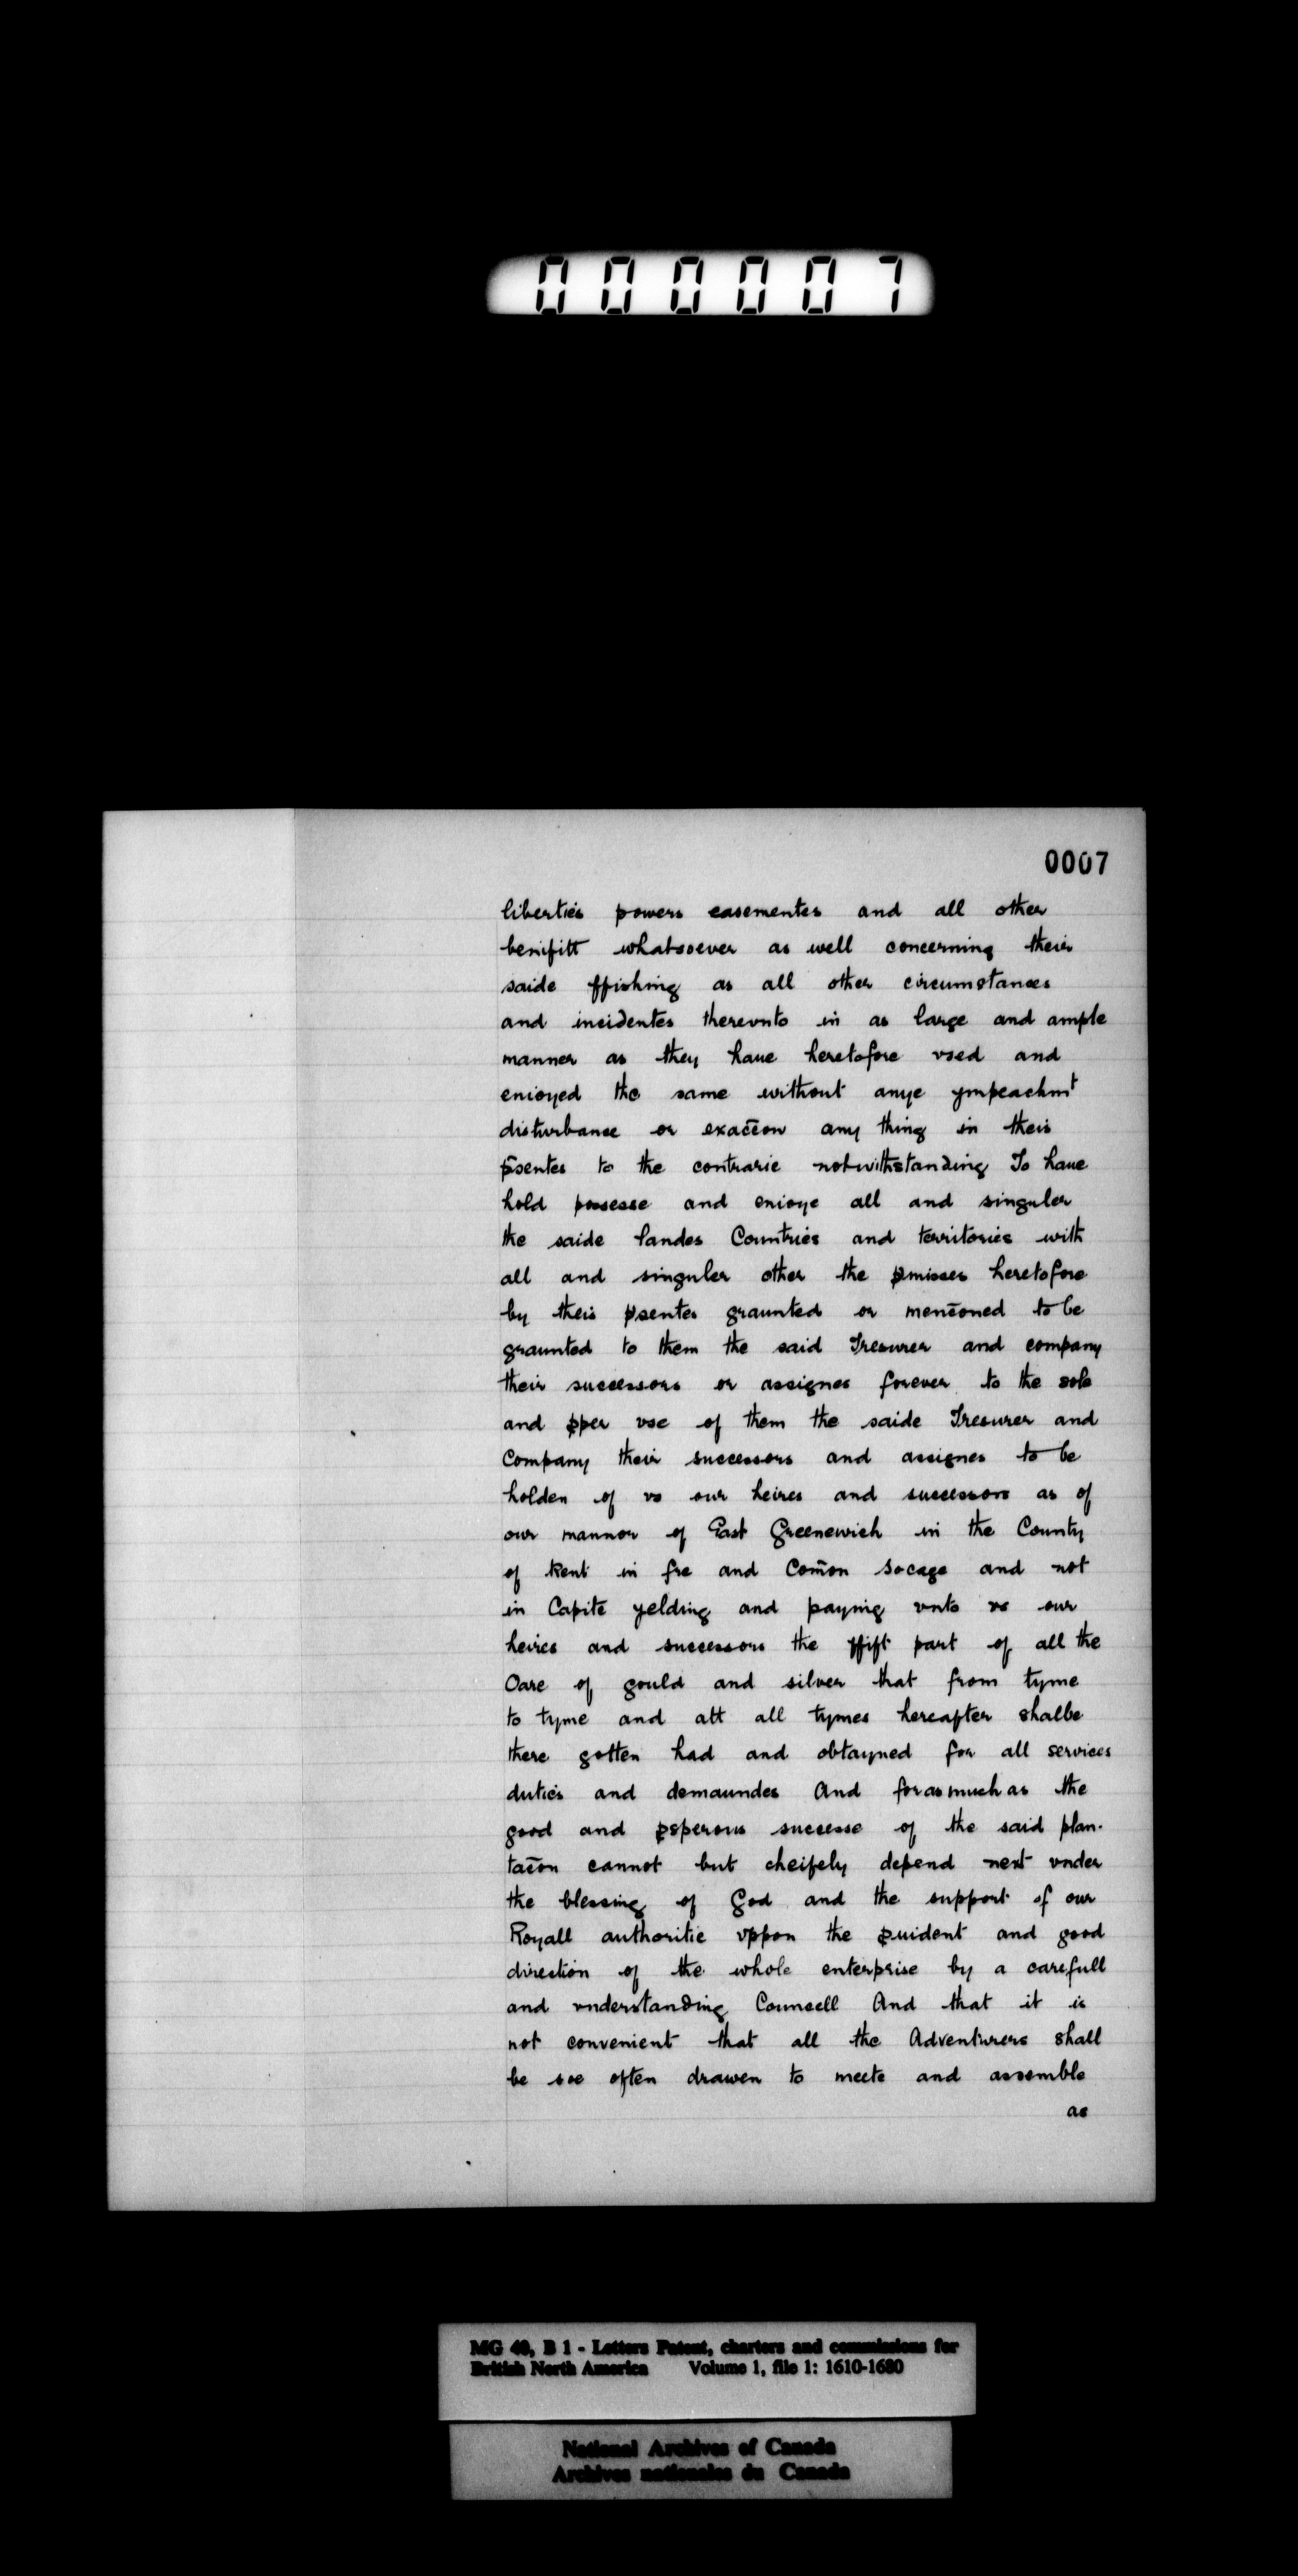 000007
0007
liberties powers easementes and all other
benifitt whatsoever as well concerning their
saide ffishing as all other circumstances
and incidentes therevnto in as large and ample
manner as they haue heretofore vsed and
enioyed the same without anye ympeachmᵗ
disturbance or exac̄on any thing in theis
p̄sentes to the contrarie notwithstanding To haue
hold possesse and enioye all and singuler
the saide landes Countries and territories with
all and singuler other the p̄misses heretofore
by theis p̄sentes graunted or menc̄oned to be
graunted to them the said Tresurer and company
their successors or assignes forever to the sole
and ꝓper vse of them the saide Tresurer and
Company their successors and assignes to be
holden of vs our heires and successors as of
our mannor of East Greenewich in the County
of Kent in fre and Com̄on Socage and not
in Capite yelding and paynig vnto vs our
heires and successors the ffift part of all the
Oare of gould and silver that from tyme
to tyme and att all tymes hereafter shalbe
there gotten had and obtayned for all services
duties and demaundes And forasmuch as the
good and ꝓsperous successe of the said plan-
tac̄on cannot but cheifely depend next vnder
the blessing of God and the support of our
Royall authoritie vppon the ꝓuident and good
direction of the whole enterprise by a carefull
and vnderstanding Councell And that it is
not convenient that all the Adventurers shall
be soe often drawen to meete and assemble
as
MG 40, B 1 - Letters Patent, charters and commissions for
British North America Volume 1, file 1: 1610-1680
National Archives of Canada
Archives nationales du Canada